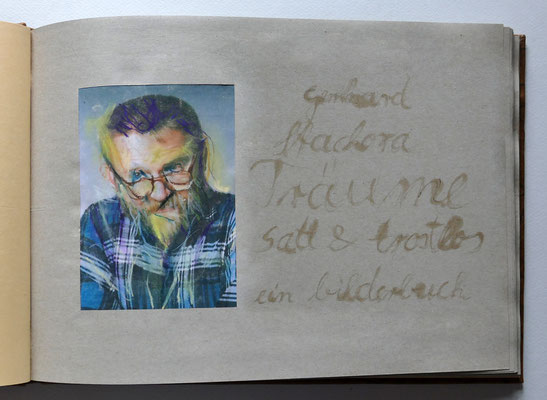 gerhard
Stachora
Träume
satt & trostlos
ein bilderbuch